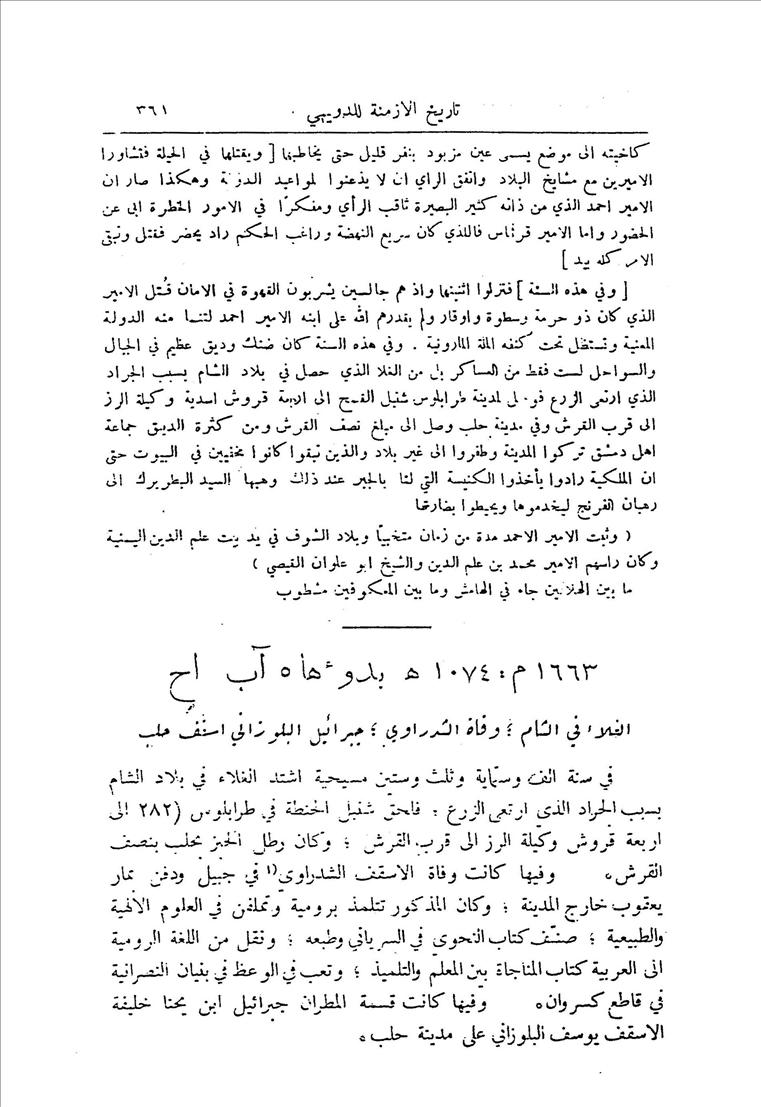 تاريخ الازمنة للدويهي . ٣٦١
كاخيته الى موضع يسمى عين مزبود بنفر قليل حتى يخاطبها [ ويقتلها في الحيلة فتشاورا
الاميرين مع مشايخ البلاد واتفق الراي ان لا يذعنوا لمواعيد الدولة وهكذا صار ان
الامير احمد الذي من ذاته كثير البصيرة ثاقب الرأي ومفكرًا في الامور الخطرة ابى عن
الحضور واما الامير قرقماس فاللذي كان سريع النهضة وراغب الحكم راد يحضر فقتل وتبقى
الامر كله بيد ]
[ وفي هذه السنة ] فتزلوا اثنينها واذ هم جالسين يشربون القهوة في الامان قُتل الامير
الذي كان ذو حرمة وسطوة واوقار ولم يقدرهم الله على ابنه الامير احمد لتنما منه الدولة
المعنية وتستظل تحت كنفه الملة المارونية . وفي هذه السنة كان ضنك وديق عظيم في الجبال
والسواحل لست فقط من العساكر بل من الغلا الذي حصل في بلاد الشام بسبب الجراد
الذي ارتعى الزرع لمدينة طرابلوس شنبل القمح الى اربعة قروش اسدية وكيلة الرز
الى قرب القرش وفي مدينة حلب وصل الى مبلغ نصف القرش ومن كثرة الديق جماعة
اهل دمشق تركوا المدينة وطفروا الى غير بلاد والذين تبقوا كانوا مختبيين في البيوت حتى
ان الملكية رادوا يأخذوا الكنيسة التي لنا بالجبر عند ذلك وهبها السيد البطريرك الى
رهبان الفرنج ليخدموها ويحيطوا بضارتها
( وثبت الامير الاحمد مدة من زمان متخبيًا وبلاد الشوف في يد بيت علم الدين اليمنية
وكان راسهم الامير محمد بن علم الدين والشيخ ابو علوان القيصي )
ما بين الهلالين جاء في الهامش وما بين المعكوفين مشطوب
١٦٦٣ م : ١٠٧٤ ه بدوءها ٥ آب اح
الغلاء في الشام ؛ وفاة الشدراوي ؛ جبرائيل البلوزاني اسقف حلب
في سنة الف وستماية وثلث وستين مسيحية اشتد الغلاء في بلاد الشام
بسبب الجراد الذي ارتعى الزرع : فلحق شنبل الحنطة في طرابلوس (٢٨٢ الى
اربعة قروش وكيلة الرز الى قرب القرش ؛ وكان رطل الخبز بحلب بنصف
القرش ٥ وفيها كانت وفاة الاسقف الشدراوي (١ في جبيل ودفن بمار
يعقوب خارج المدينة ؛ وكان المذكور تتلمذ برومية وتملفن في العلوم الالهية
والطبيعية ؛ صنّف كتاب النحوي في السرياني وطبعه ؛ ونقل من اللغة الرومية
الى العربية كتاب المناجاة بين المعلم والتلميذ ؛ وتعب في الوعظ في بنيان النصرانية
في قاطع كسروان ٥ وفيها كانت قسمة المطران جبرائيل ابن يحنا خليفة
الاسقف يوسف البلوزاني على مدينة حلب ٥